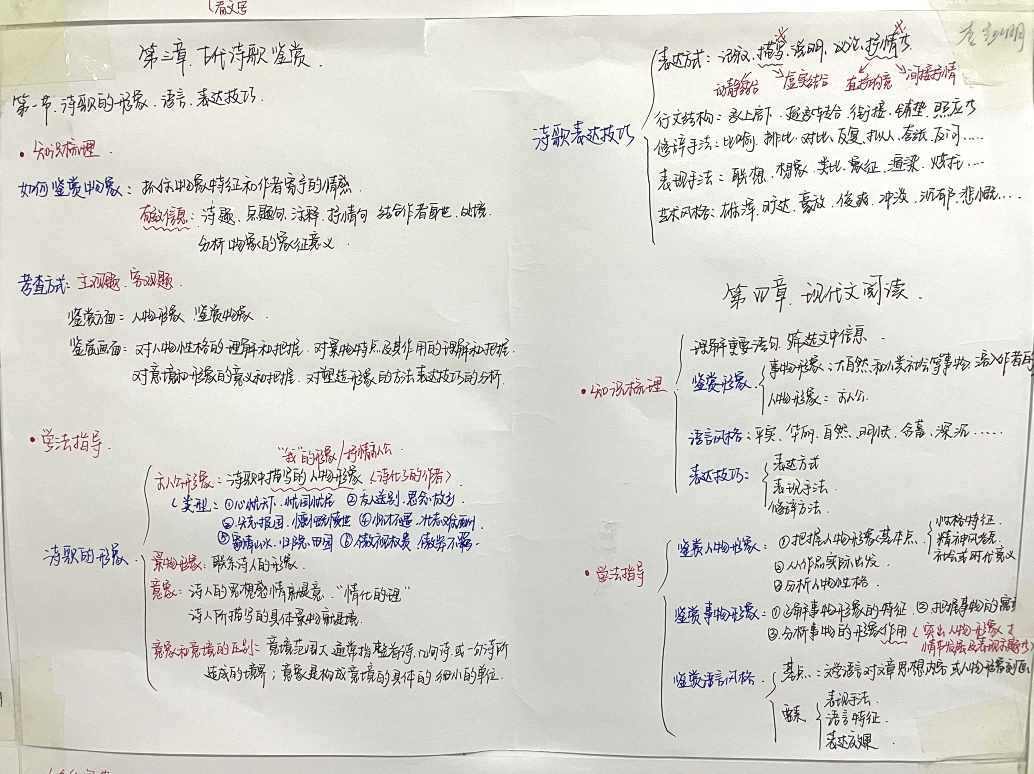 (看文字
第三章 古代诗歌鉴赏.
第一节. 诗歌的形象、语言、表达技巧.
• 知识梳理.
如何鉴赏物象: 抓住物象特征和作者寄予的情感.
有效信息: 诗题、点题句、注释、抒情句 结合作者身世、处境
分析物象的象征意义.
考查方式: 主观题、客观题
鉴赏方面: 人物形象、鉴赏物象.
鉴赏画面: 对人物性格的理解和把握、对景物特点及其作用的理解和把握.
对意境和形象的意义和把握、对塑造形象的方法表达技巧的分析.
• 学法指导
"我"的形象/抒情主人公
诗歌的形象
主人公形象: 诗歌中描写的人物形象 (诗化了的作者)
(类型: ①心忧天下、忧国忧民 ②友人送别、思念故乡
③矢志报国、慷慨愤世 ④怀才不遇、壮志难酬
⑤寄情山水、归隐田园 ⑥傲视权贵、
景物形象: 联系诗人的形象.
意象: 诗人的思想感情就是意. "情化的理"
诗人所描写的具体景物就是境.
意象和意境的区别: 意境范围大, 通常指整首诗, 几句诗, 或一句诗所
造成的境界; 意象是构成意境的具体的细小的单位.
诗歌表达技巧
表达方式: 记叙、描写、说明、议论、抒情等
动静结合 虚实结合 直抒胸臆 间接抒情
行文结构: 承上启下、衔接、铺垫、照应等
修辞手法: 比喻、排比、对比、反复、拟人、夸张、反问.....
表现手法: 联想、想象、类比、象征、渲染、烘托....
艺术风格: 雄浑、旷达、豪放、俊爽、冲淡、沉郁、悲慨....
第四章. 现代文阅读.
• 知识梳理
理解重要语句, 筛选文中信息.
鉴赏形象
事物形象: 大自然和人类社会等事物 溶入作者的
人物形象: 主人公.
语言风格: 平实、华丽、自然、明快、含蓄、深沉......
表达技巧:
表达方式
表现手法.
修辞方法.
• 学法指导
鉴赏人物形象: ①把握人物形象基本点.
性格特征.
精神风貌.
社会或时代意义
②从作品实际出发.
③分析人物性格.
鉴赏事物形象: ①理解事物形象的特征 ②把握事物的寓意
③分析事物的形象作用 (突出人物形象、
情节发展及表现主题等)
鉴赏语言风格
基点: 文学语言对文章思想内容或人物形象刻画
要素
表现手法.
语言特征.
表达效果.